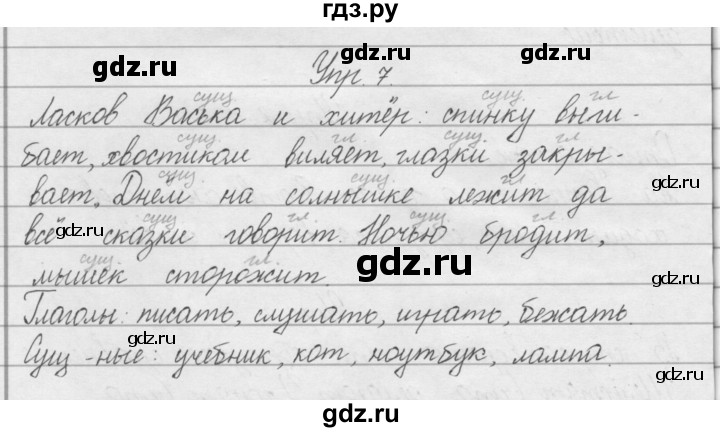 гдз.ру
gdz.ru gdz.ru gdz.ru
Упр. 7.
сущ сущ гл
Ласков Васька и хитёр: спинку выги-
сущ. гл. сущ. гл
бает, хвостиком виляет, глазки закры-
сущ. сущ. гл
вает. Днём на солнышке лежит да gdz.ru
сущ гл. сущ. гл.
всё сказки говорит. Ночью бродит,
gdz.ru
сущ. гл.
мышек сторожит. gdz.ru gdz.ru
Глаголы: писать, слушать, играть, бежать.
gdz.ru gdz.ru
Сущ-ные: учебник, кот, ноутбук, лампа.
gdz.ru